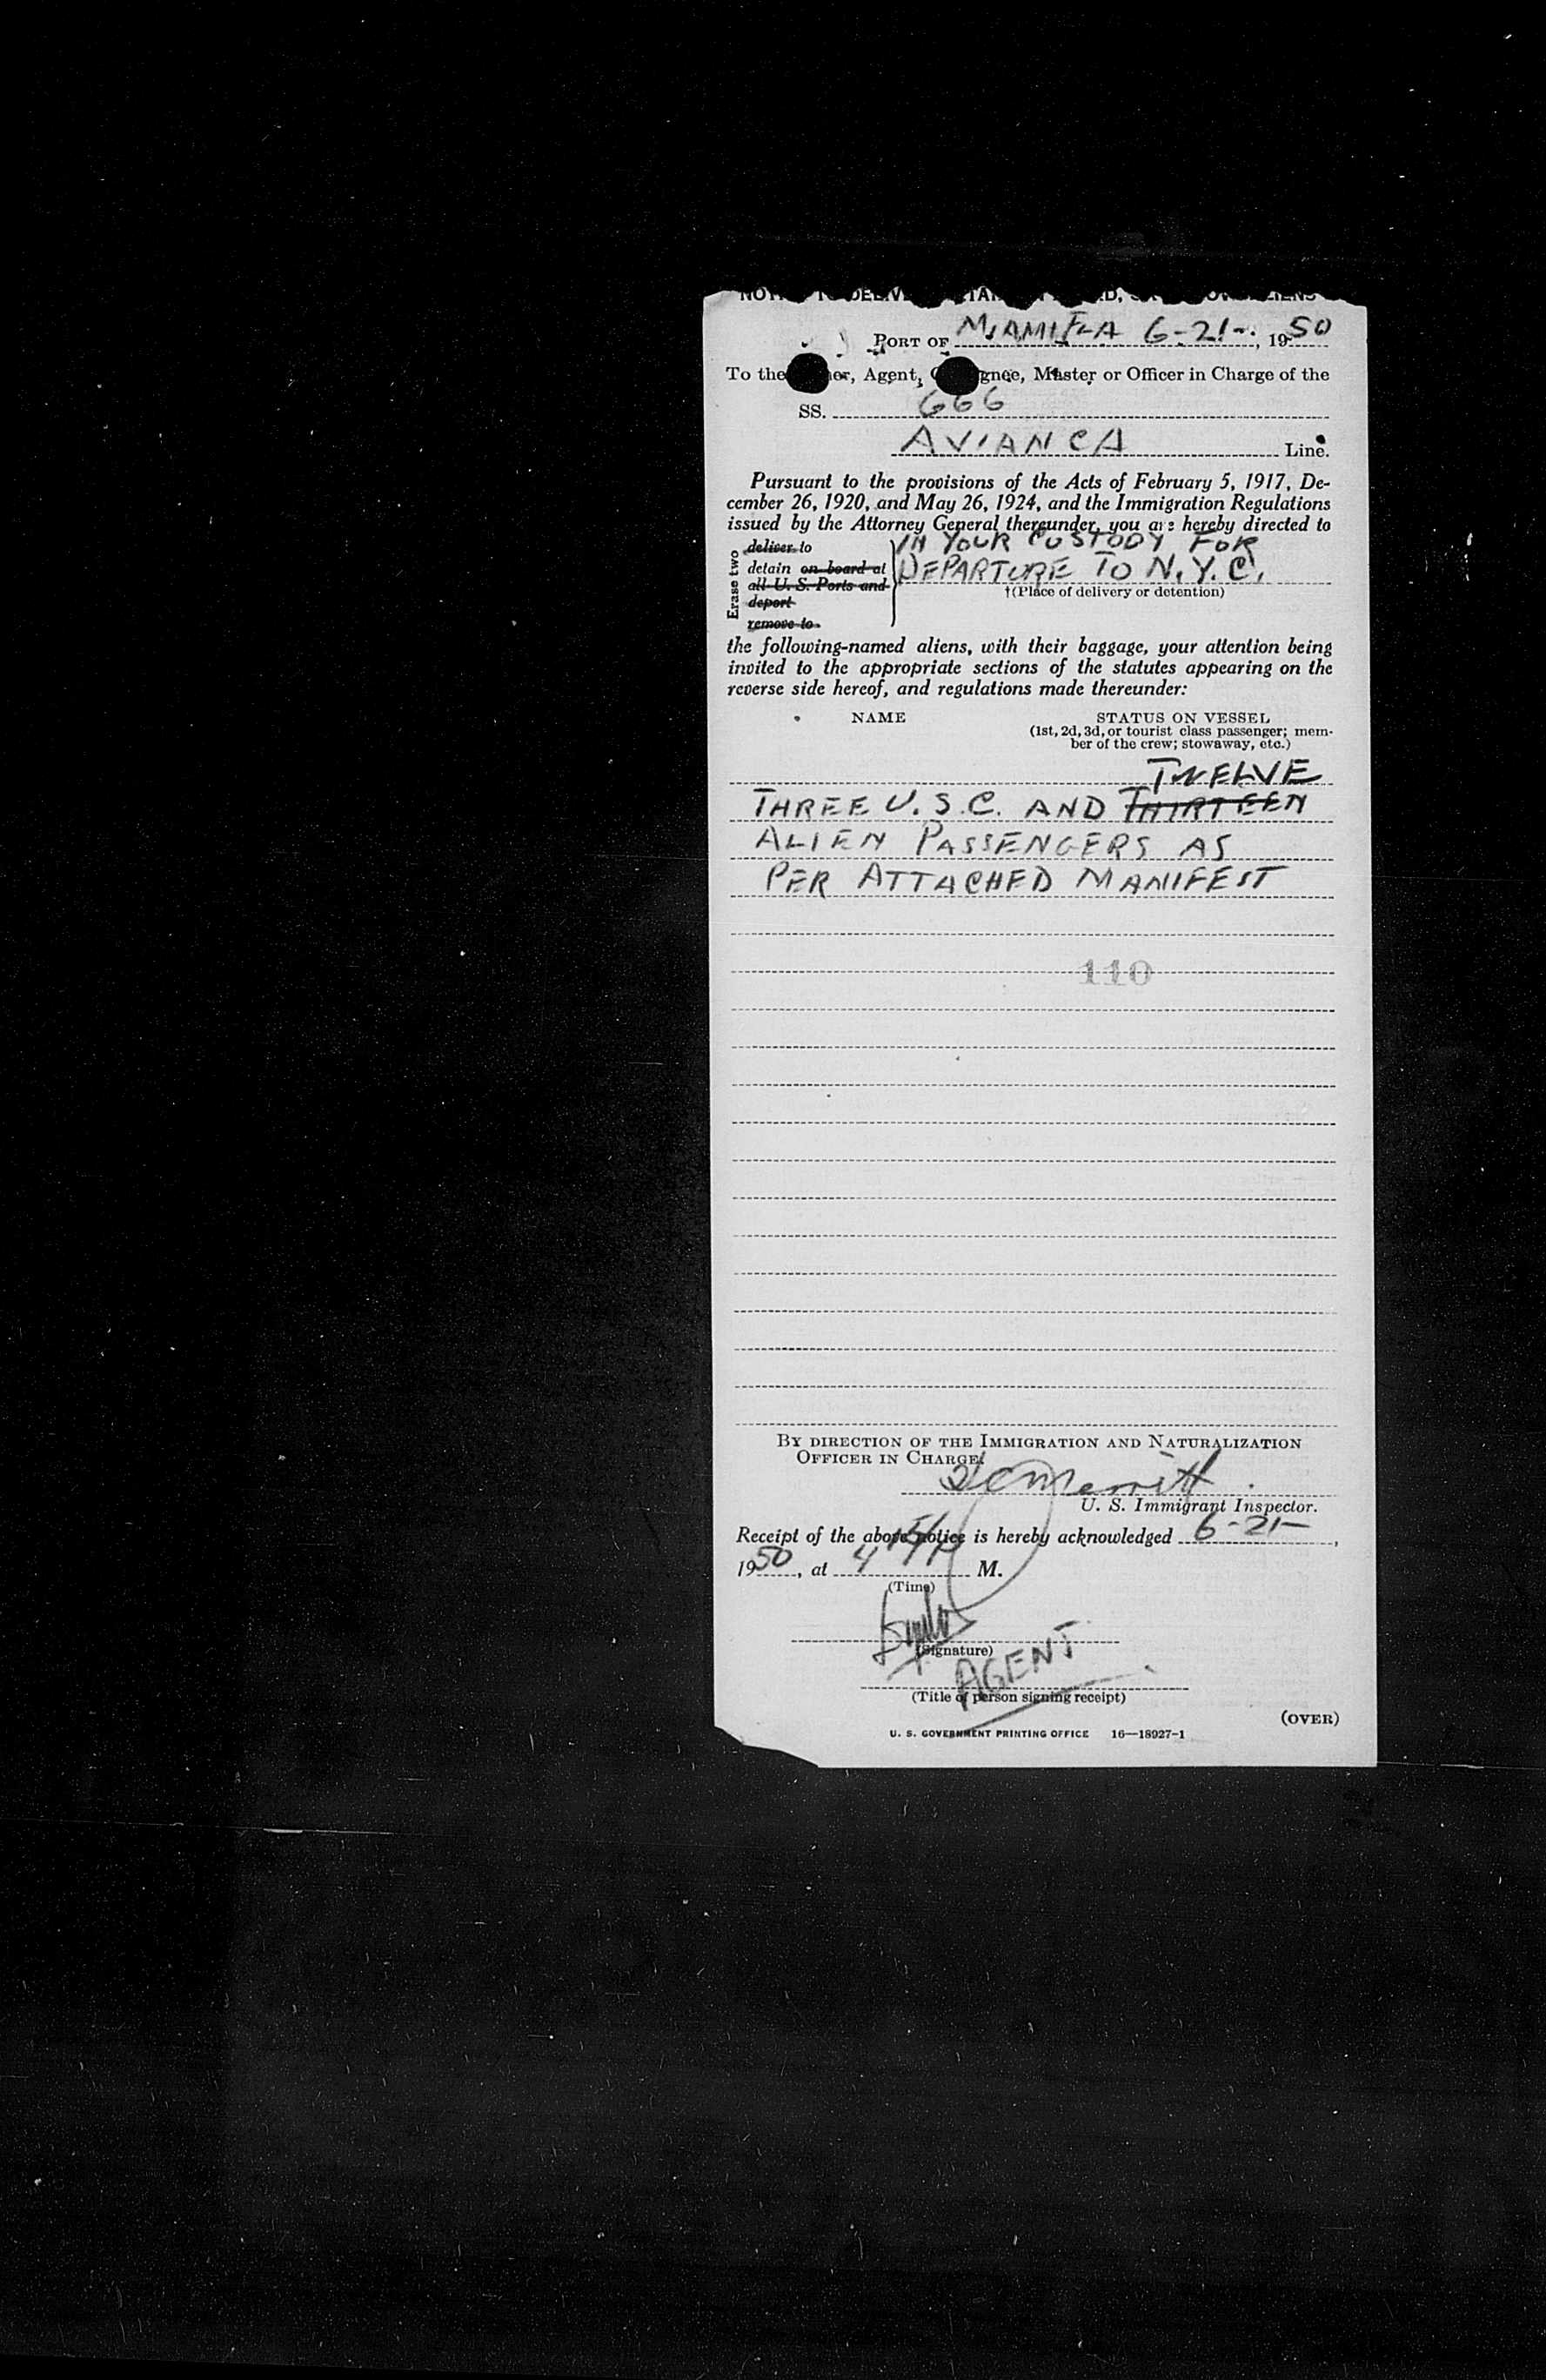 PORT OF MIAMI FLA 6-21-, 1950
To the Agent, Master or Officer in Charge of the
SS. 666
AVIANCA Line.
Pursuant to the provisions of the Acts of February 5, 1917, De-
cember 26, 1920, and May 26, 1924, and the Immigration Regulations
issued by the Attorney General thereunder, you are hereby directed to
Erase two
deliver to
detain on board at
all U. S. Ports and
deport
remove to
IN YOUR CUSTODY FOR
DEPARTURE TO N.Y.C.
†(Place of delivery or detention)
the following-named aliens, with their baggage, your attention being
invited to the appropriate sections of the statutes appearing on the
reverse side hereof, and regulations made thereunder:
NAME
STATUS ON VESSEL
(1st, 2d, 3d, or tourist class passenger; mem-
ber of the crew; stowaway, etc.)
TWELVE
THREE U.S.C. AND THIRTEEN
ALIEN PASSENGERS AS
PER ATTACHED MANIFEST
110
BY DIRECTION OF THE IMMIGRATION AND NATURALIZATION
OFFICER IN CHARGE:
Merritt
U. S. Immigrant Inspector.
Receipt of the above notice is hereby acknowledged 6-21-,
1950, at 4 15/P M.
(Time)
(Signature)
AGENT
(Title of person signing receipt)
(OVER)
U. S. GOVERNMENT PRINTING OFFICE 16—18927-1